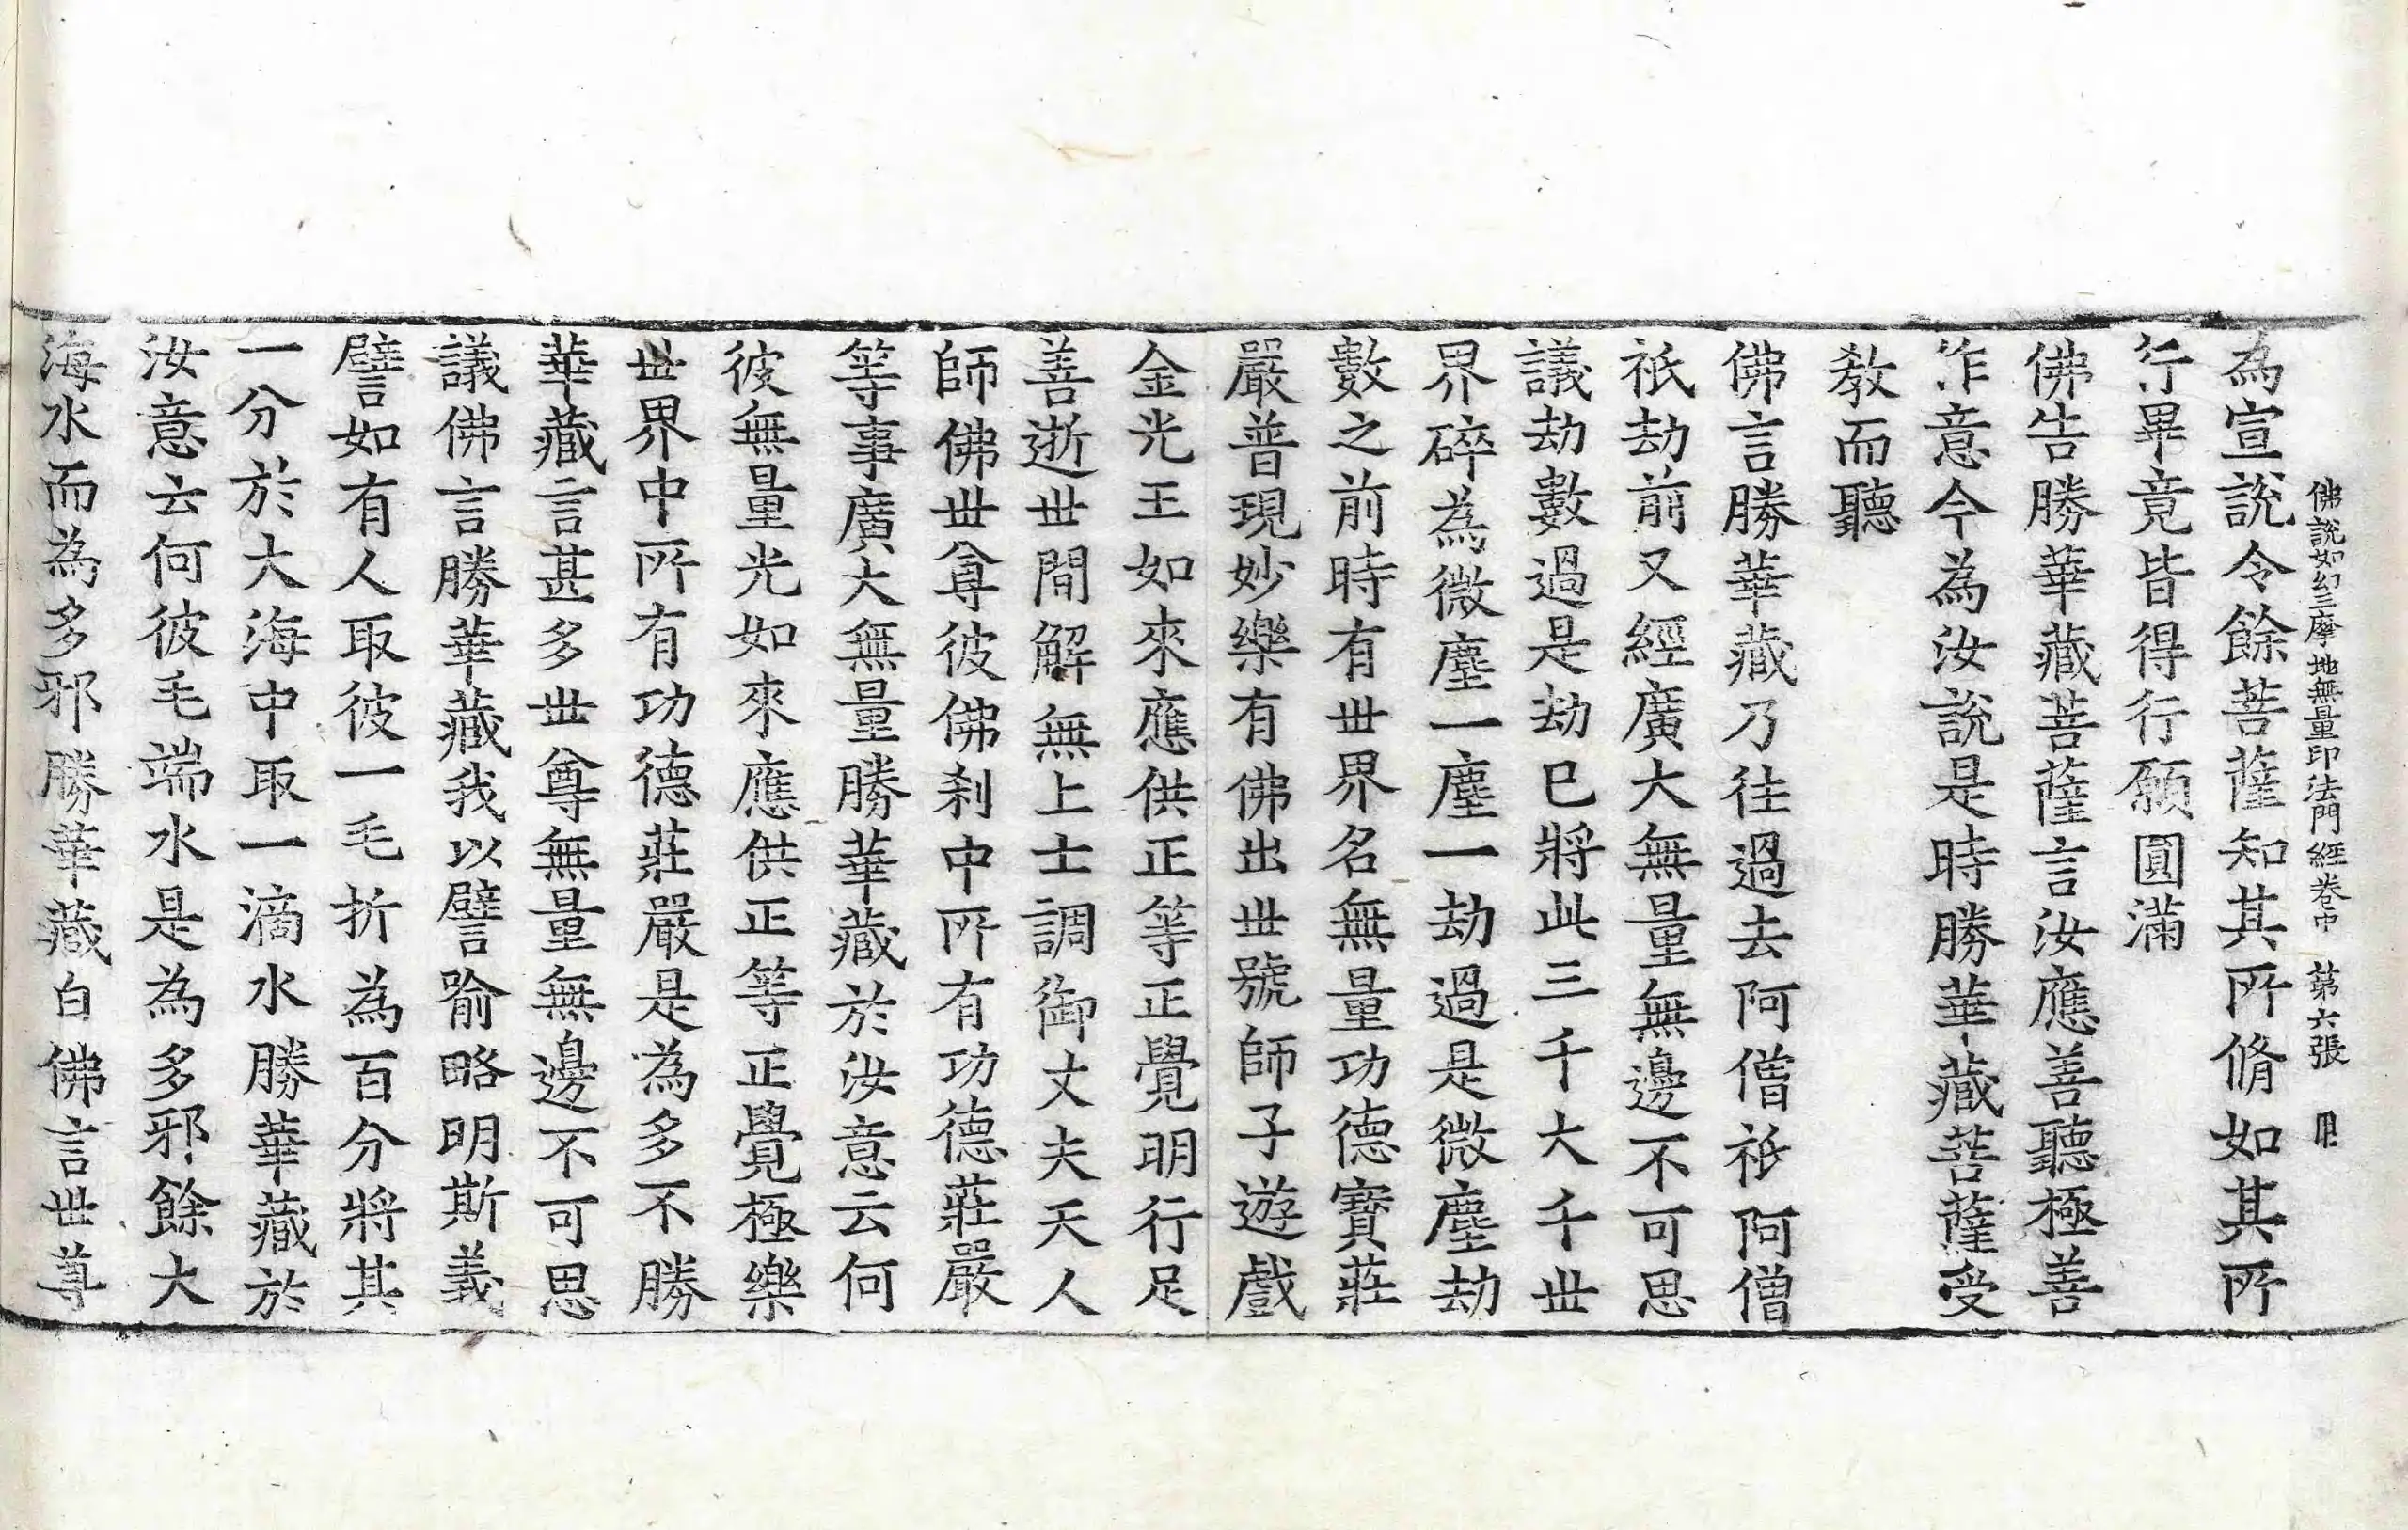 佛說如幻三摩地無量印法門經卷中　第六張
為宣說令餘菩薩知其所脩如其所
行畢竟皆得行願圓滿
佛告勝華藏菩薩言汝應善聽極善
作意今為汝說是時勝華藏菩薩受
教而聽
佛言勝華藏乃往過去阿僧祇阿僧
祇劫前又經廣大無量無邊不可思
議劫數過是劫已將此三千大千世
界碎為微塵一塵一劫過是微塵劫
數之前時有世界名無量功德寶莊
嚴普現妙樂有佛出世號師子遊戲
金光王如來應供正等正覺明行足
善逝世間解無上士調御丈夫天人
師佛世尊彼佛剎中所有功德莊嚴
等事廣大無量勝華藏於汝意云何
彼無量光如來應供正等正覺極樂
世界中所有功德莊嚴是為多不勝
華藏言甚多世尊無量無邊不可思
議佛言勝華藏我以譬喻略明斯義
譬如有人取彼一毛折為百分將其
一分於大海中取一滴水勝華藏於
汝意云何彼毛端水是為多邪餘大
海水而為多邪勝華藏白佛言世尊